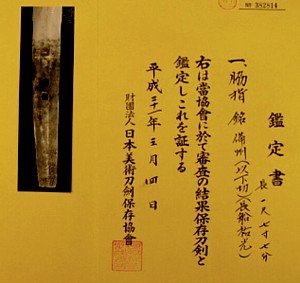 No 382814
鑑定書
一、脇指 銘 備州(以下切)(長船祐光)
長一尺七寸七分
右は當協會に於て審査の結果保存刀剣と
鑑定しこれを証する
平成二十一年三月四日
財團法人日本美術刀剣保存協會